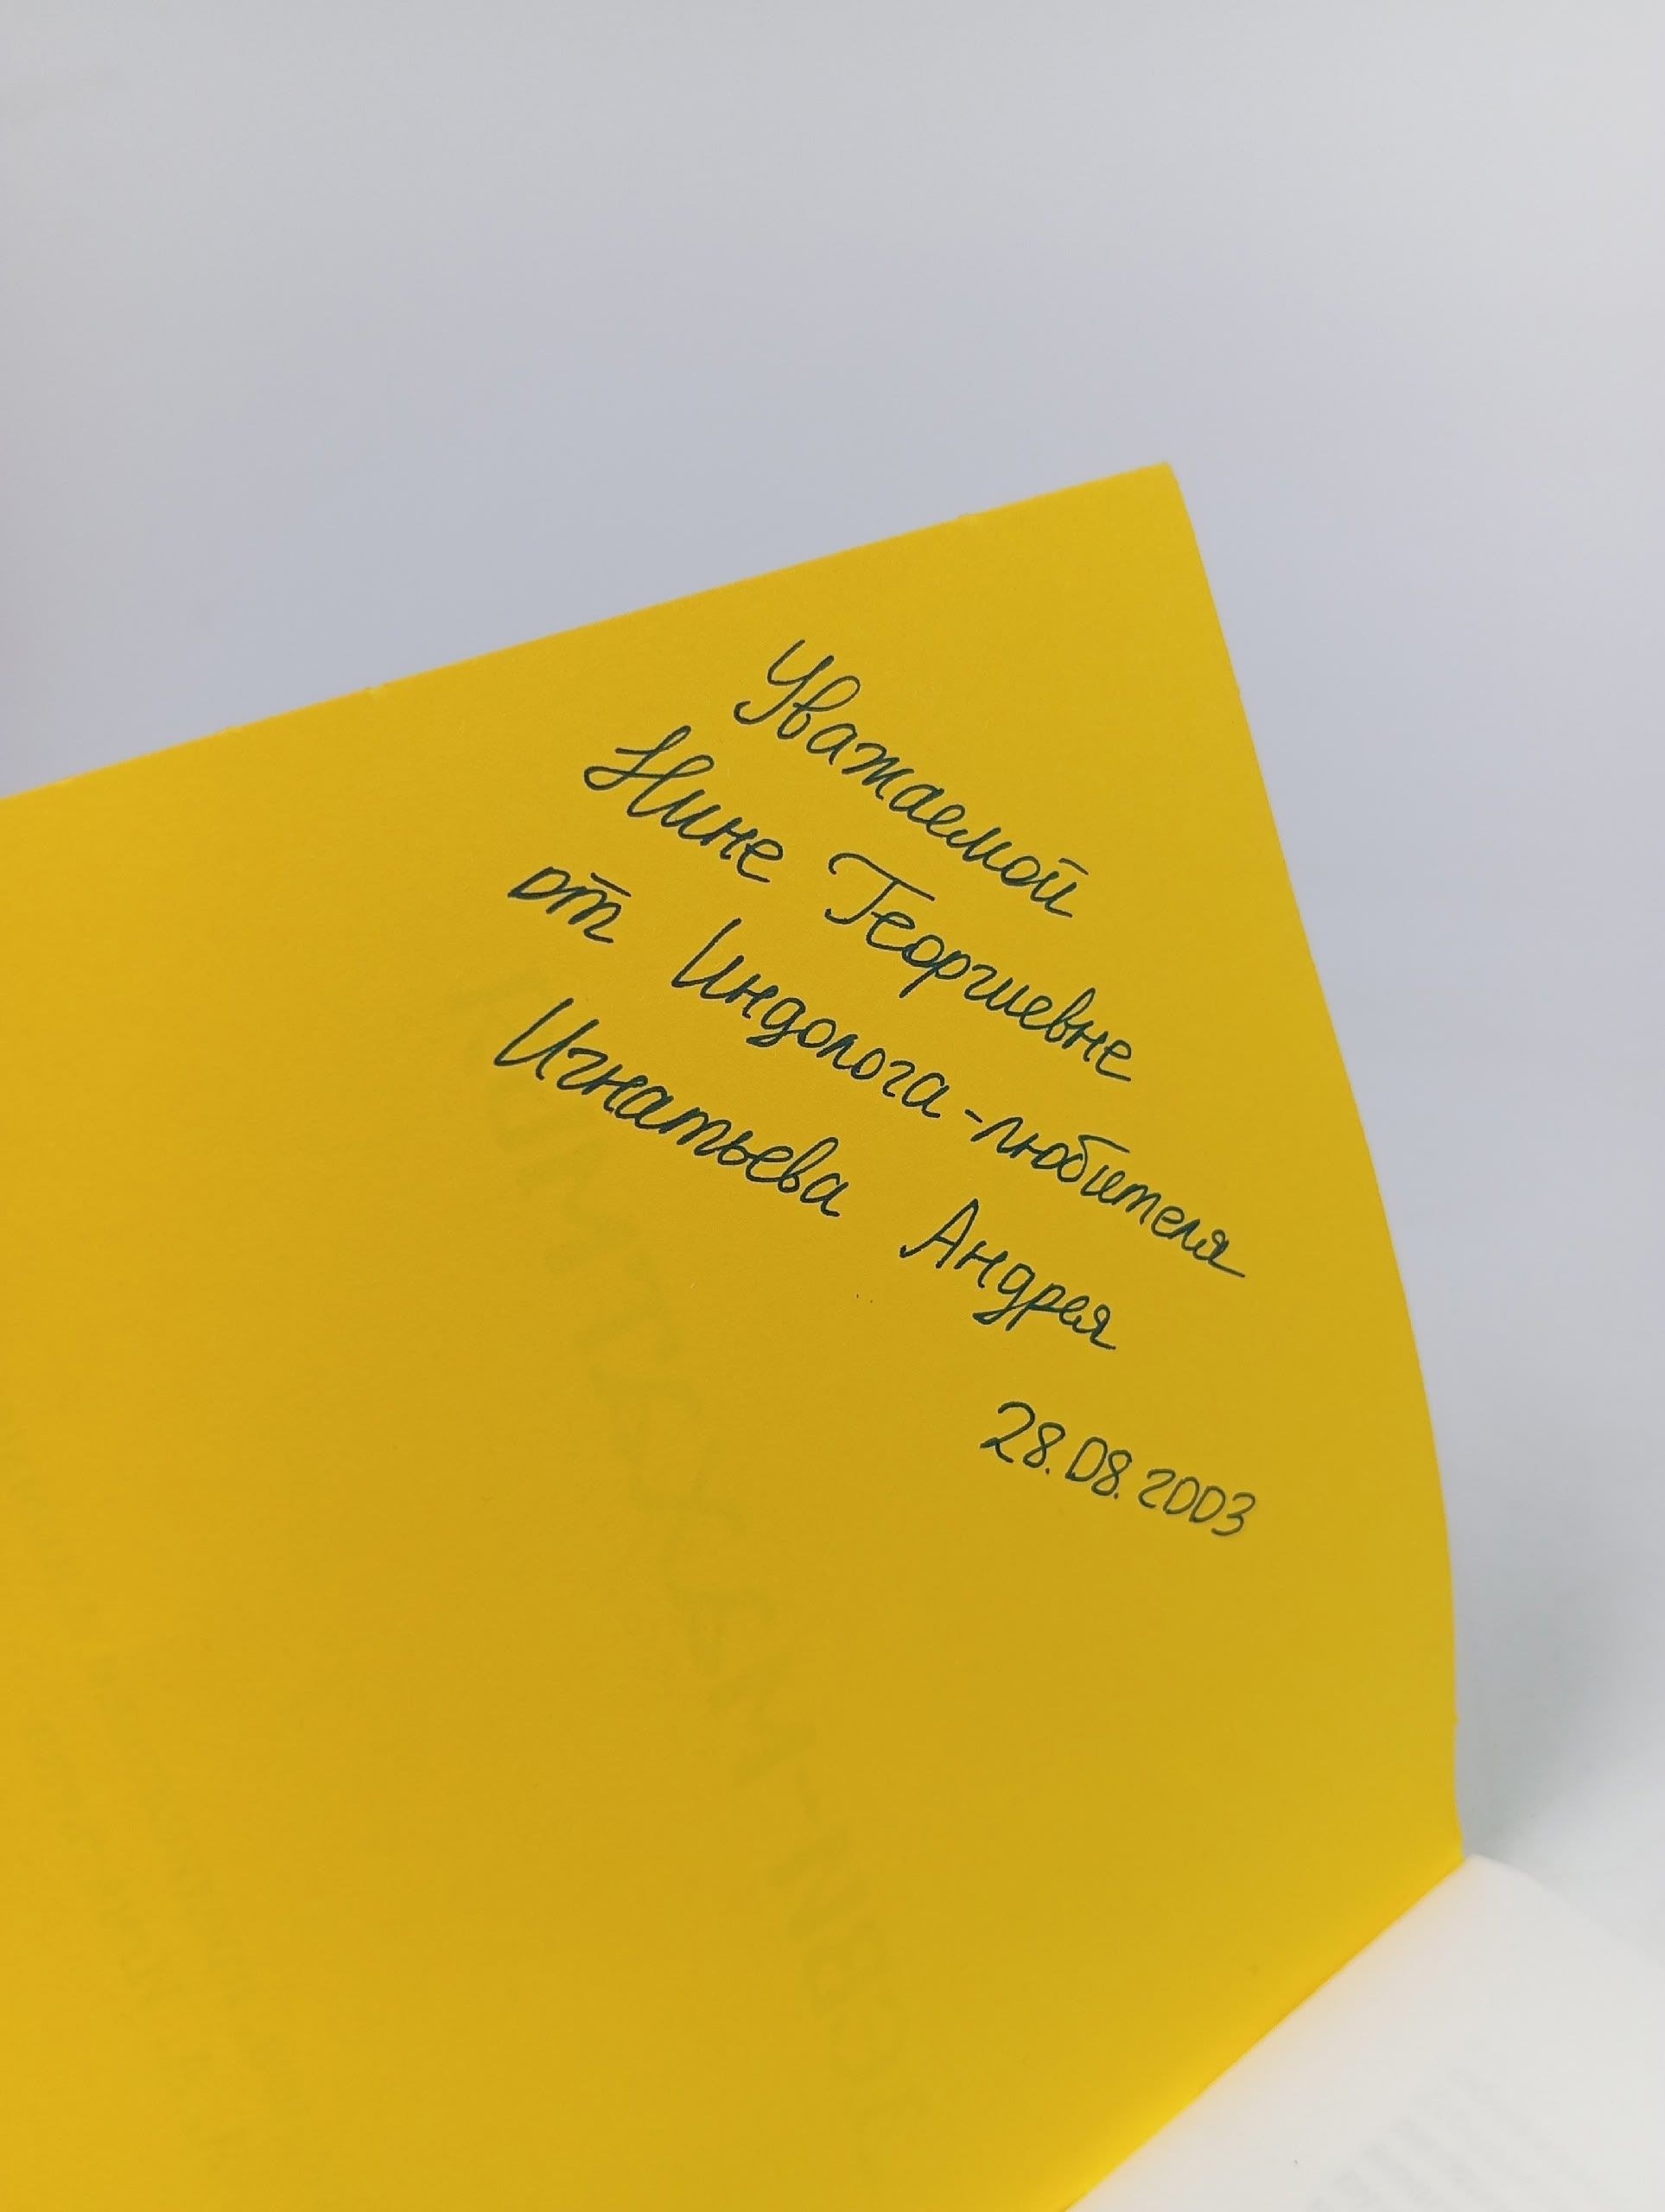 Уважаемой
Нине Георгиевне
от Индолога-любителя
Игнатьева Андрея
28.08.2003